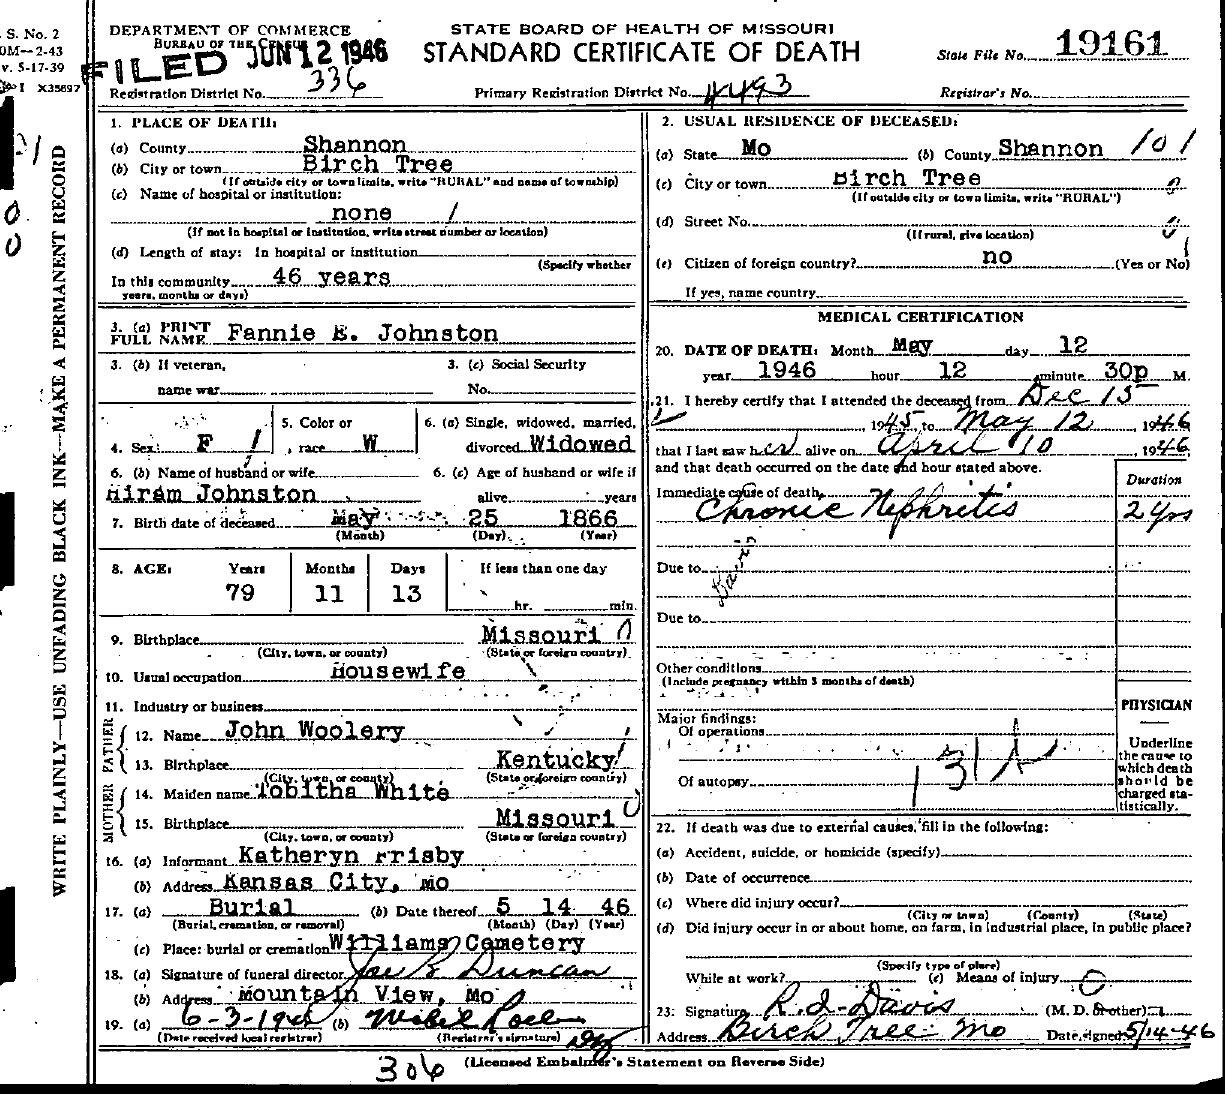 S. No. 2
0M—2-43
v. 5-17-39
I X35697
WRITE PLAINLY—USE UNFADING BLACK INK—MAKE A PERMANENT RECORD
DEPARTMENT OF COMMERCE
BUREAU OF THE CENSUS
FILED JUN 12 1946
STATE BOARD OF HEALTH OF MISSOURI
STANDARD CERTIFICATE OF DEATH
State File No. 19161
Registration District No. 336
Primary Registration District No. 4493
Registrar's No.
1. PLACE OF DEATH:
(a) County Shannon
(b) City or town Birch Tree
(If outside city or town limits, write "RURAL" and name of township)
(c) Name of hospital or institution:
none /
(If not in hospital or institution, write street number or location)
(d) Length of stay: In hospital or institution
(Specify whether
In this community 46 years
years, months or days)
2. USUAL RESIDENCE OF DECEASED:
(a) State Mo (b) County Shannon 101
(c) City or town Birch Tree
(If outside city or town limits, write "RURAL")
(d) Street No.
(If rural, give location)
(e) Citizen of foreign country? no (Yes or No)
If yes, name country
3. (a) PRINT
FULL NAME Fannie E. Johnston
3. (b) If veteran,
name war
3. (c) Social Security
No.
4. Sex F /
5. Color or
race W
6. (a) Single, widowed, married,
divorced Widowed
6. (b) Name of husband or wife
Hiram Johnston
6. (c) Age of husband or wife if
alive years
7. Birth date of deceased May 25 1866
(Month) (Day) (Year)
8. AGE: Years Months Days If less than one day
79 11 13
hr. min.
9. Birthplace Missouri 0
(City, town, or county) (State or foreign country)
10. Usual occupation Housewife
11. Industry or business
FATHER
12. Name John Woolery
13. Birthplace Kentucky /
(City, town, or county) (State or foreign country)
MOTHER
14. Maiden name Tobitha White
15. Birthplace Missouri 0
(City, town, or county) (State or foreign country)
16. (a) Informant Katheryn Frisby
(b) Address Kansas City, Mo
17. (a) Burial (b) Date thereof 5 14 46
(Burial, cremation, or removal) (Month) (Day) (Year)
(c) Place: burial or cremation Williams Cemetery
18. (a) Signature of funeral director Joe Duncan
(b) Address Mountain View, Mo
19. (a) 6-3-1946 (b)
(Date received local registrar) (Registrar's signature)
MEDICAL CERTIFICATION
20. DATE OF DEATH: Month May day 12
year 1946 hour 12 minute 30p M.
21. I hereby certify that I attended the deceased from Dec 15
1945, to May 12, 1946
that I last saw her alive on April 10, 1946
and that death occurred on the date and hour stated above.
Duration
Immediate cause of death
Chronic Nephritis 2 yrs
Due to
Due to
Other conditions
(Include pregnancy within 3 months of death)
Major findings:
Of operations
Of autopsy
PHYSICIAN
Underline
the cause to
which death
should be
charged sta-
tistically.
22. If death was due to external causes, fill in the following:
(a) Accident, suicide, or homicide (specify)
(b) Date of occurrence
(c) Where did injury occur?
(City or town) (County) (State)
(d) Did injury occur in or about home, on farm, in industrial place, in public place?
(Specify type of place)
While at work? (e) Means of injury
23. Signature R. I. Davis (M. D. or other)
Address Birch Tree Mo Date signed 5/14-46
(Licensed Embalmer's Statement on Reverse Side)
306